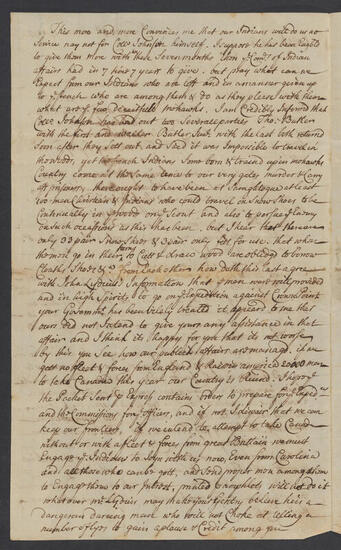 This more and more Convinces me that our Indians will do us no
Service nay not for Collo Johnson himself. I suppose he has been
to give them more with these Seven months than ye Comrs of Indian
affairs had in 7 hors 7 years to give. but pray what can we
Expect from our Nations who are left and so
ye french who are amongst them & do as they please with them
what are ye few deceitfull mohawks. I am Credibly Informed that
Collo Johnson had out two Severall parties Tho: Butler
with the first and Walter Butler Junr with the last both returnd
Soon after they Sett out, and Said it was Impossible to travel in
the woods, yet two french Indians Some born & friend upon mohawks
Country come at this Same time to our very gates murder & Carry
off prisoners, there ought to have been at Saraghtogue at least
100 men Christians & Indians who could travel on Snow Shoes to be
Continually in ye woods on ye Scout and also to persue ye Enemy
on Such occasions as this has been. but I hear that there are
only 33 pair Snow Shoes & 3 pair only fitt for use, that when
the men go in their turns to Cutt & draw wood are obliged to borrow
Cloaths Shoes & from Each other how doth this last agree
with John Lydius's Information that ye men were well provided
and in high Spirits to go on ye Expedition against Crown Point
your Governmt has been vilely treated it apeared to me that
ours did not Intend to give yours any assistance in that
affair and I think its happy for you that its not worse
by this you See how our publick affairs are managed. if we
get no fleet & forces from England & Raise in america 20000 men
to take Canada this year our Country is Ruind. I hope
the Packet Sent ye Express contains orders to prepare for ye Expedn
and the Commissions for ye officers, and if not I dispair that we can
keep our frontiers, if we intend to attempt to take Canada
without or with a fleet & forces from great Brittain we must
Engage ye Indians to Joyn with us now, Even from Carolina
and all those who can be gott, and Send proper men among them
to Engage them to our Intrest, will not do it
what ever Mr Lydius may make your Gentry believe he is a
dangerous daring man who will not Choke at telling a
number of lyes to gain aplause & Credit among you